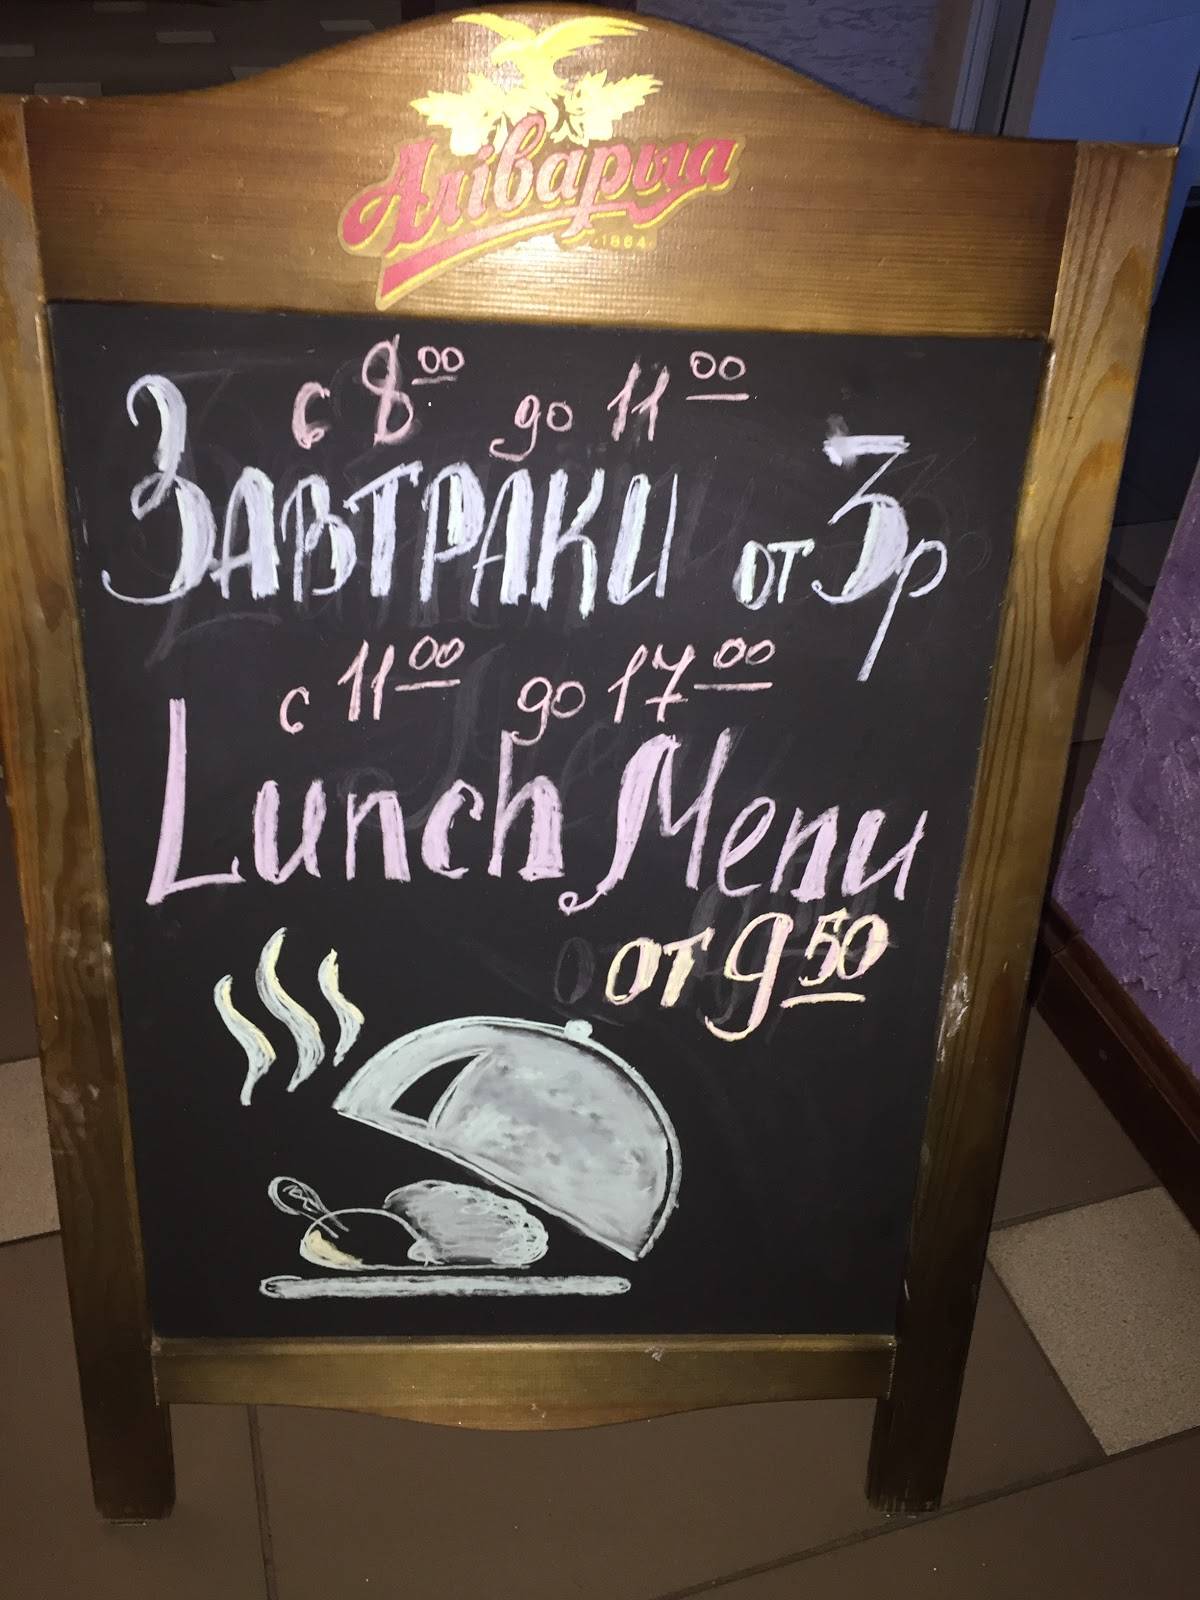 Аліварыя
1864
с 8 00 до 11 00
Завтраки от 3р
с 11 00 до 17 00
Lunch Menu
от 9 50